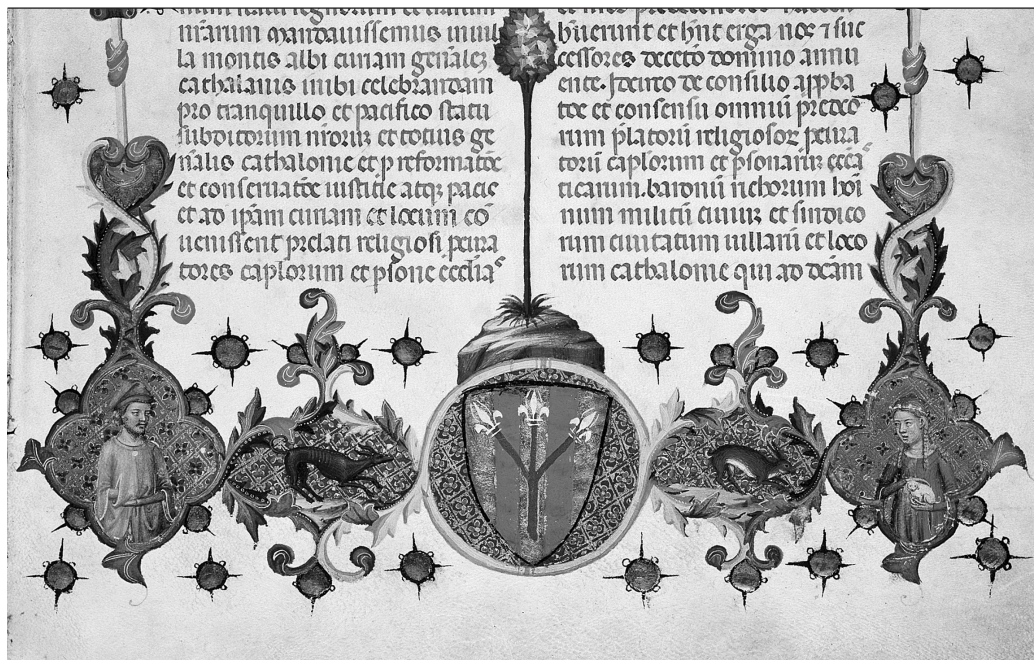 mandavissemus in vil
la montis albi curiam gen̄alez
cathalanis inibi celebrandam
pro tranquillo et pacifico statu
subditorum nr̄oruz et totius ge
n̄alis cathalonie et p reformatōe
et conseruatōe iusticie atqz pacis
et ad ip̄am curiam et locum cō
uenissent prelati religiosi pcura
tores caplorum et psone ecclīa
buerunt et hn̄t erga nos ⁊ suc
cessores decetō domino annu
ente. Idcirco de consilio appba
tōe et consensu omniū predcō
rum p̄latorū religiosoz pcura
torū caplorum et psonarū eccā
ticarum. baronū richorum boī
num militū ciuiū et sindico
rum ciuitatum uillarū et loco
rum cathalonie qui ad dcām